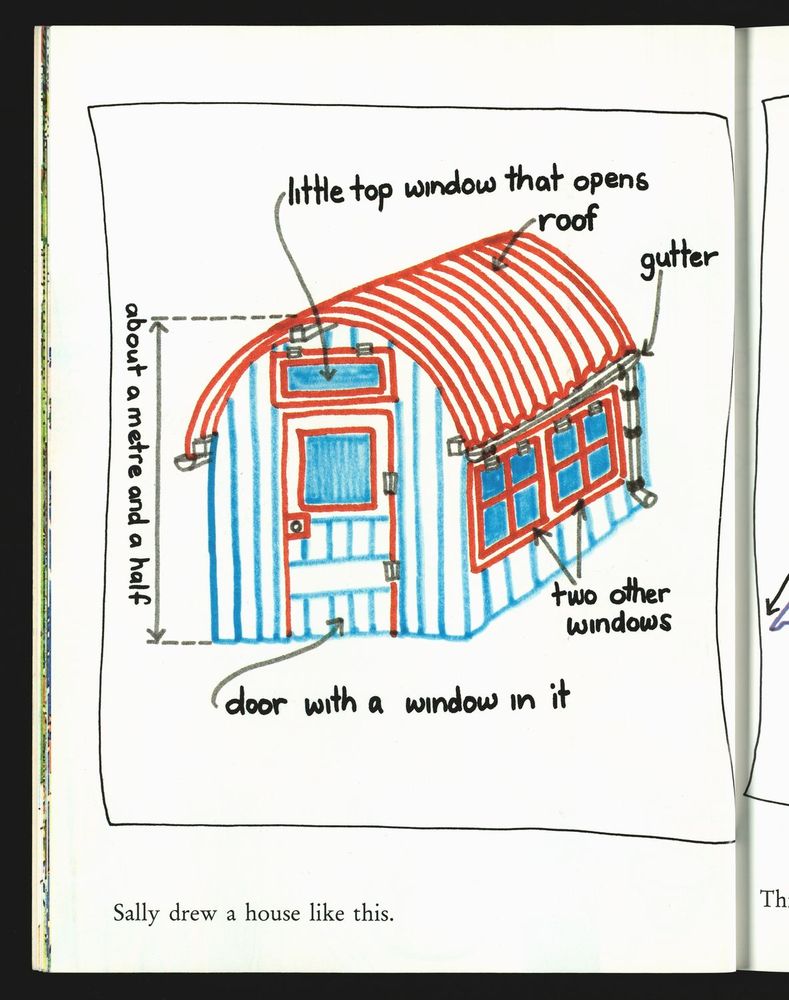 little top window that opens
roof
gutter
about a metre and a half
two other
windows
door with a window in it
Sally drew a house like this.